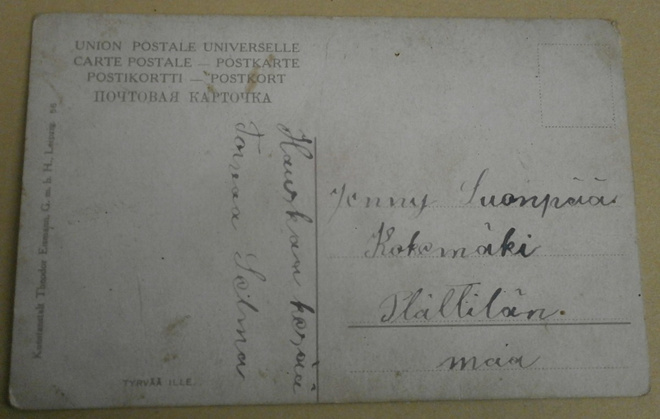 UNION POSTALE UNIVERSELLE
CARTE POSTALE — POSTKARTE
POSTIKORTTI — POSTKORT
ПОЧТОВАЯ КАРТОЧКА
Hauskam kesää
Toivoo Selma
Jenny Suonpää
Kokemäki
Plättilän.
maa
TYRVÄÄ ILLE.
Kunstanstalt Theodor Eismann, G. m. b. H., Leipzig